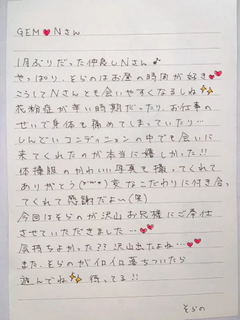 GEM♥Nさん
1月ぶりだった仲良しNさん♪
やっぱり、そらのはお昼の時間が好き💕
こうしてNさんとも会いやすくなるしね✨
花粉症が辛い時期だったり、お仕事の
せいで身体も痛めてしまっていたり…
しんどいコンディションの中でも会いに
来てくれたのが本当に嬉しかった!!
体操服のかわいい写真も撮ってくれて
ありがとう(*^^*) 変なこだわりに付き合っ
てくれて感謝だよぃ(笑)
今回はそらのが沢山お兄様にご奉仕
させていただきました…💕
気持ちよかった?? 沢山出たよね…💕
また、そらのがイロイロ落ちついたら
遊んでね✨ 待ってる!!
そらの